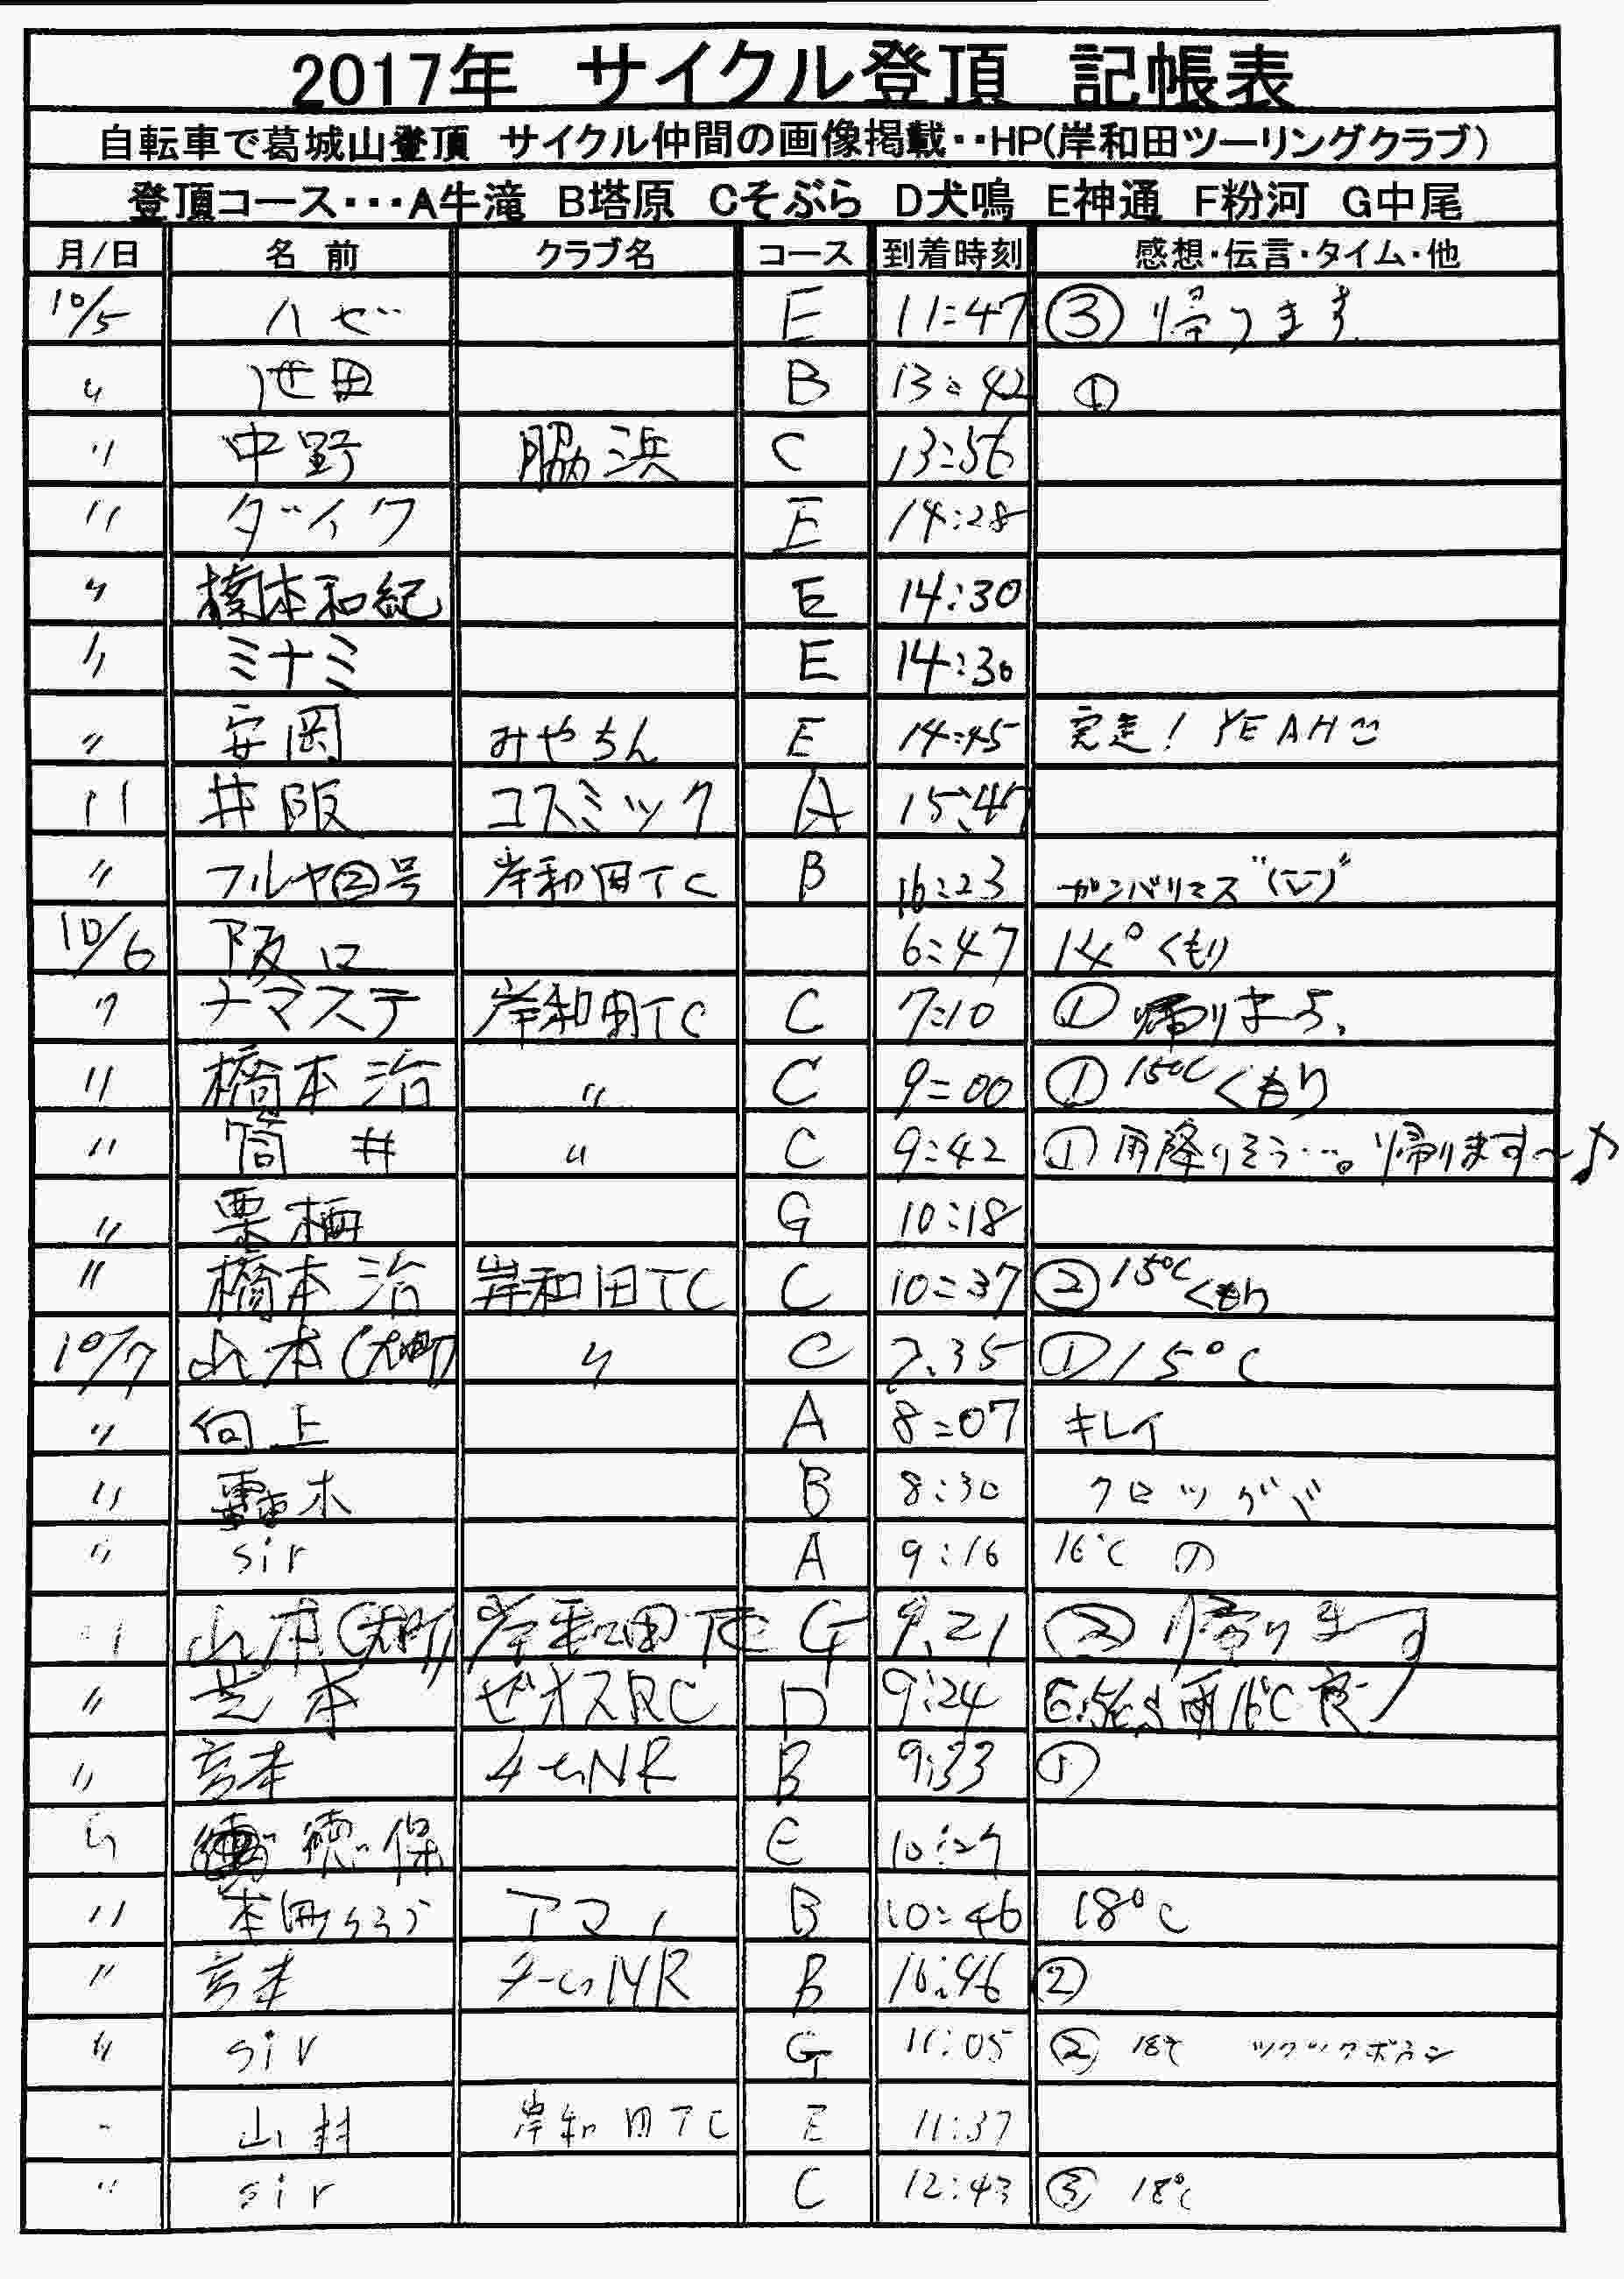 2017年 サイクル登頂 記帳表
自転車で葛城山登頂 サイクル仲間の画像掲載・・HP(岸和田ツーリングクラブ)
登頂コース・・・A牛滝 B塔原 Cそぶら D犬鳴 E神通 F粉河 G中尾
月/日 名 前 クラブ名 コース 到着時刻 感想・伝言・タイム・他
10/5 ハゼ E 11:47 ③ 帰ります
〃 池田 B 13:42 ①
〃 中野 脇浜 C 13:56
〃 ダイワ E 14:28
〃 橋本和紀 E 14:30
〃 ミナミ E 14:30
〃 安岡 みやちん E 14:45 完走! YEAH
〃 井阪 コスミック A 15:47
〃 フルヤ②号 岸和田TC B 16:23 ガンバリマス
10/6 阪口 6:47 14° くもり
〃 ナマステ 岸和田TC C 7:10 ① 帰りまよう、
〃 橋本 治 〃 C 9:00 ① 15℃ くもり
〃 筒 井 〃 C 9:42 ① 雨降りそう…。帰ります〜♪
〃 栗栖 G 10:18
〃 橋本 治 岸和田TC C 10:37 ② 15℃ くもり
10/7 山本(大町) 〃 C 7.35 ① 15℃
〃 向上 A 8:07 キレイ
〃 轟木 B 8:30
〃 sir A 9:16 16℃ の
〃 山本(大町) 岸和田TC G 9.21 ② 帰ります
〃 本 ゼオスRC D 9:24 雨16℃
〃 吉本 チームNR B 9:33 ①
〃 徳保 E 10:27
〃 B 10:46 18℃
〃 吉本 チームNR B 10:46 ②
〃 sir G 11:05 ② 18℃ ツクツクボウシ
〃 山村 岸和田TC E 11:37
〃 sir C 12:43 ③ 18℃